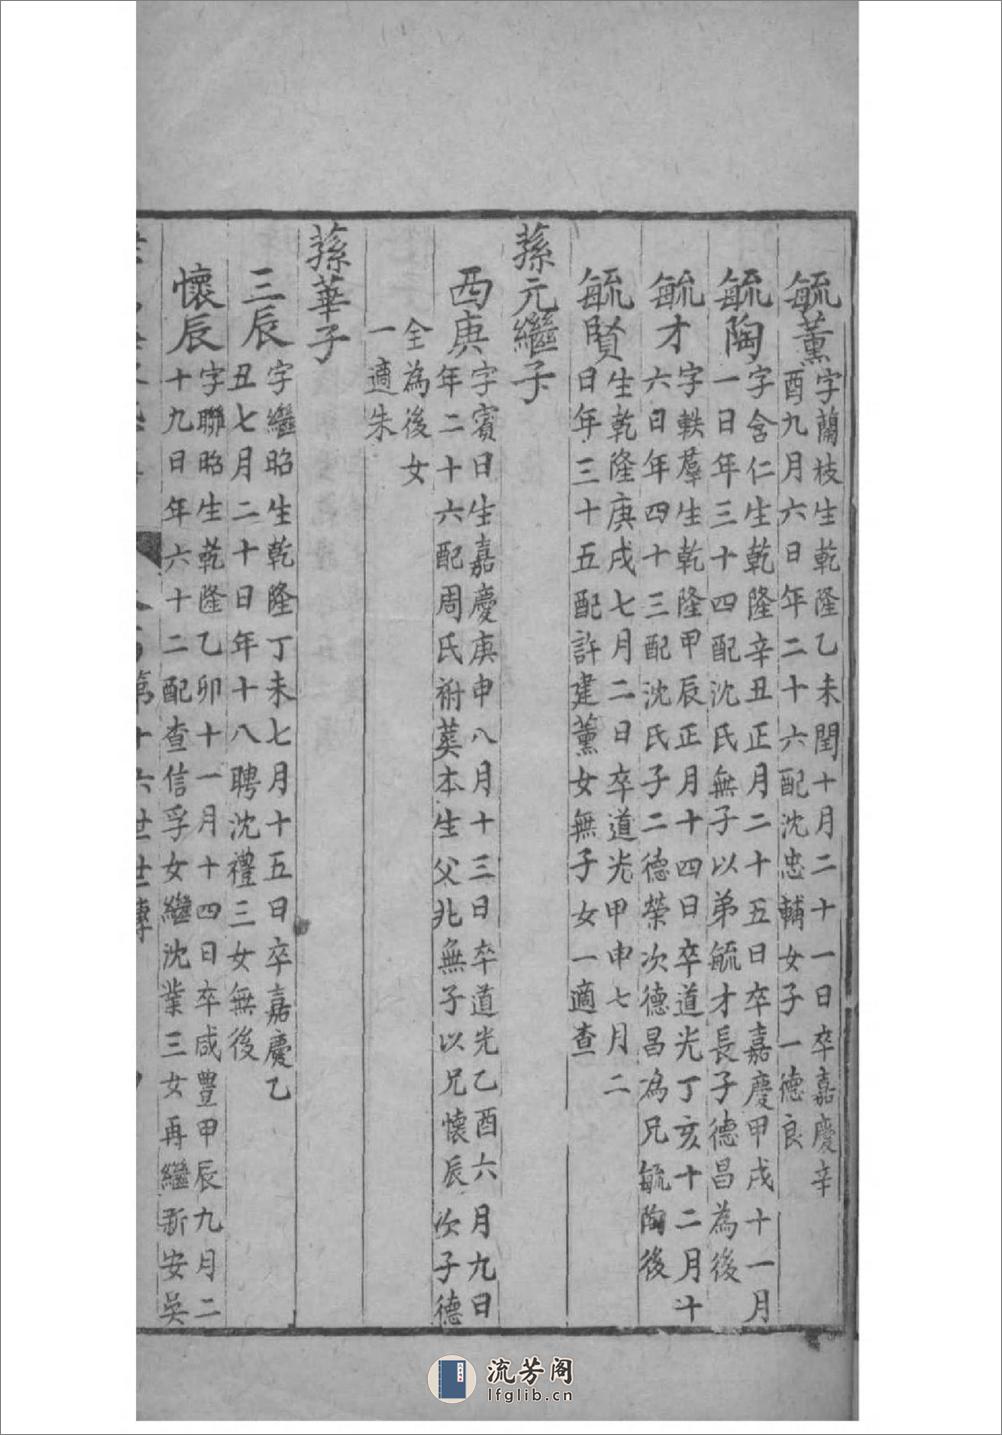 毓薰
字蘭枝生乾隆乙未閏十月二十一日卒嘉慶辛
酉九月六日年二十六配沈忠輔女子一德良
毓陶
字含仁生乾隆辛丑正月二十五日卒嘉慶甲戌十一月
一日年三十四配沈氏無子以弟毓才長子德昌為後
毓才
字軼羣生乾隆甲辰正月十四日卒道光丁亥十二月十
六日年四十三配沈氏子二德榮次德昌為兄毓陶後
毓賢
生乾隆庚戌七月二日卒道光甲申七月二
日年三十五配許建薰女無子女一適查
蓀元繼子
西庚
字賓日生嘉慶庚申八月十三日卒道光乙酉六月九日
年二十六配周氏祔葬本生父兆無子以兄懷辰次子德
全為後女
一適朱
蓀華子
三辰
字繼昭生乾隆丁未七月十五日卒嘉慶乙
丑七月二十日年十八聘沈禮三女無後
懷辰
字聯昭生乾隆乙卯十一月十四日卒咸豐甲辰九月二
十九日年六十二配查信孚女繼沈業三女再繼新安吳
第十六世世傳